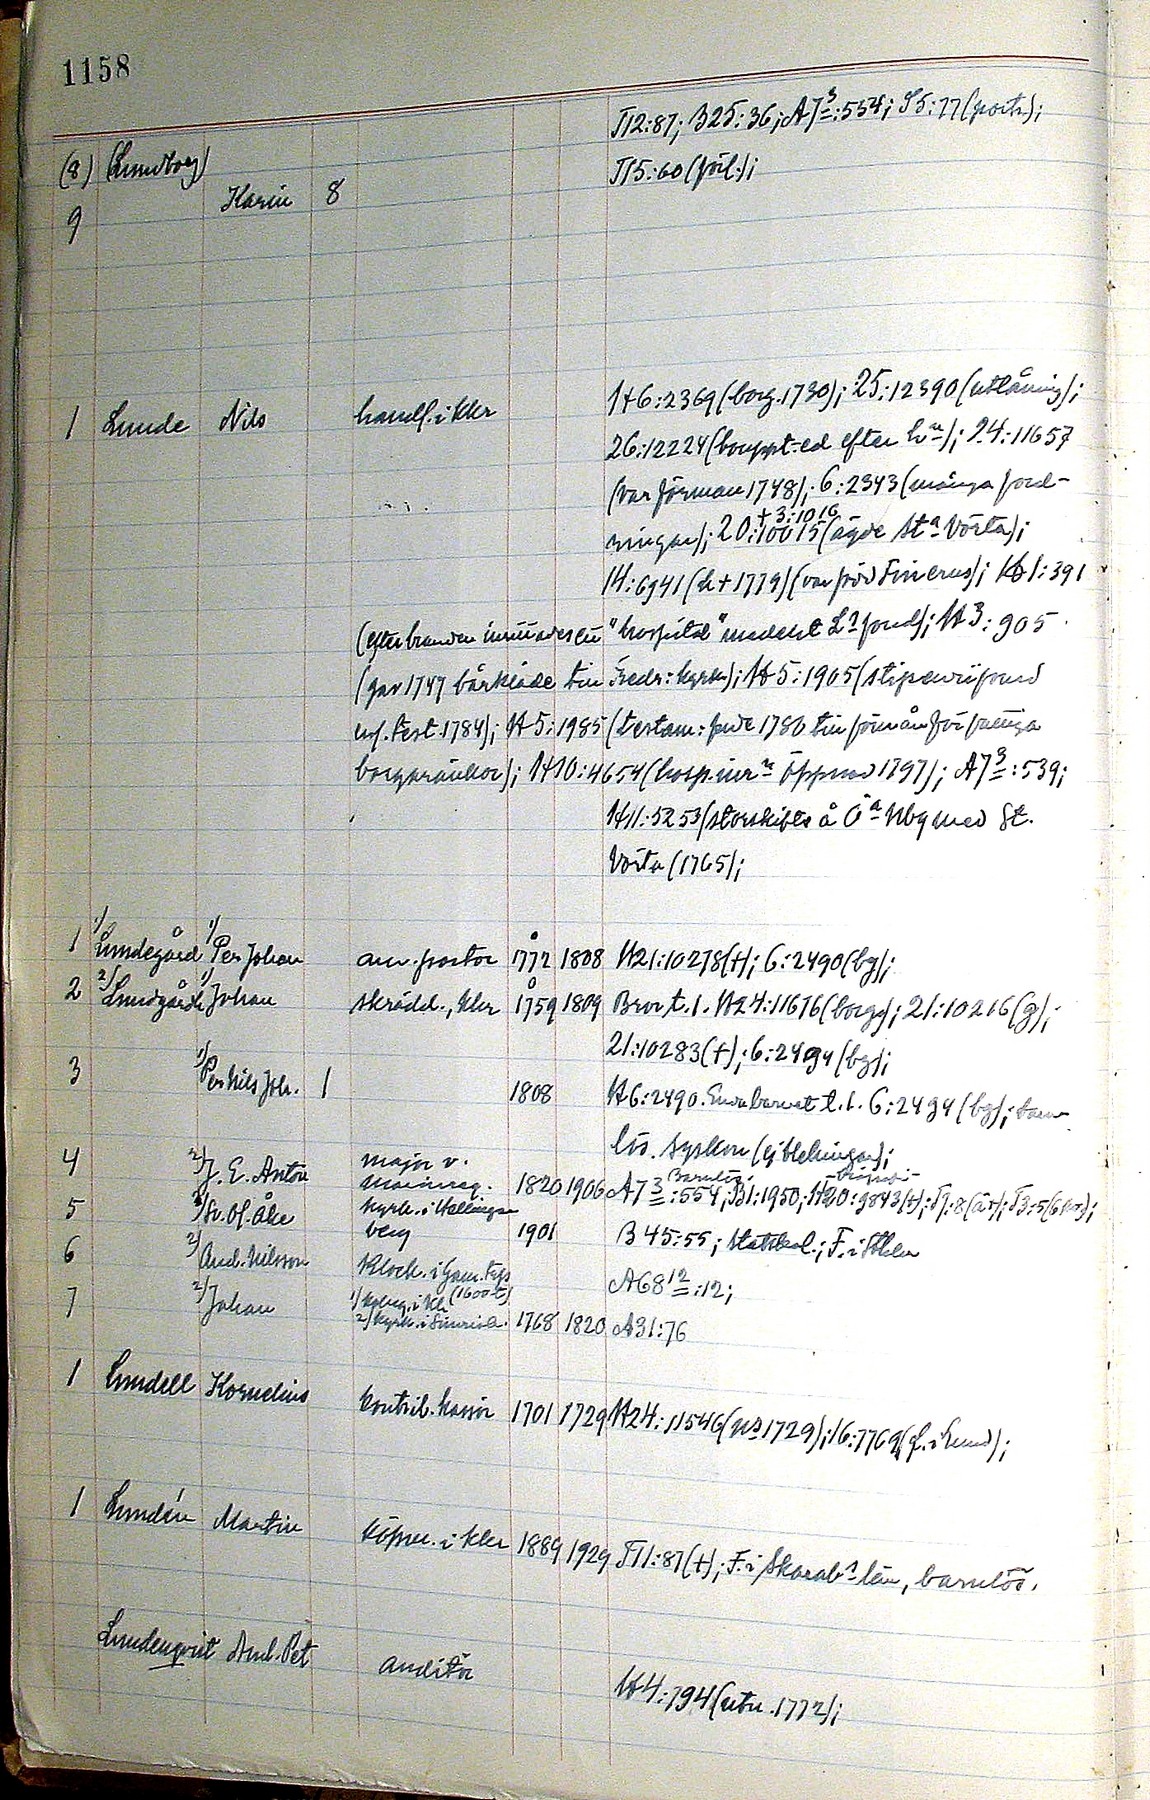 1158
T12:87; B25:36; A7 3:554; S5:77 (portr);
(8) (Lundborg) T15:60 (föil.);
9 Karin 8
1 Lunde Nils handl. i Kkr H6:2369 (borg. 1730); 25:12390 (utlåning);
26:12224 (bouppt-ed efter hn); 24:11657
(var förman 1748); 6:2343 (många ford-
+ 3:1016
ringar); 20:10015 (ägde Sta Vörta);
14:6941 (d + 1779) (var född Finerus); H1:391
(efter branden inrättades ett "hospital" medelst L:s fond); H3:905
(gav 1747 bårkläde till Fredr: kyrkn); H5:1905 (stipendiifond
enl. test. 1784); H5:1985 (testam: fude 1780 till förmån för fattiga
borgaränkor); H10:4654 (hosp. öppnad 1797); A7 3:539;
H11:5253 (storskiftes å Öa Nbg med St.
Vörta (1765);
1 1/ Lundegård 1/ Per Johan am. pastor 1772 1808 H21:10278 (+); 6:2490 (bg);
2 2/ Lundgårdh 1/ Johan skrädd., Kkr 1759 1809 Bror t. 1. H24:11676 (borgs); 21:10216 (g);
21:10283 (+); 6:2494 (bg);
3 1/ Per Nils Joh. 1 1808 H6:2490. Enda barnet t. 1. 6:2494 (bg);
lös. Syskon (ej blekingar);
4 2/ J. E. Anton major v. 1820 1906 Barnlös.
A7 3:554; B1:1950; H20:9843 (+); T1:8 (år); T3:5
5 2/ Sv. Ol. Åke kyrkh. i Hellinge-
berg 1901 B 45:55; Statskal.; F. i Sthlm
6 2/ And. Nilsson Klock. i Gam. (1600-t) A68 12:12;
7 2/ Johan 1/ i Kk.
2/ kyrkh. i 1768 1820 A31:76
1 Lundell Kornelius kontrib. kassör 1701 1729 H24:11546 (1729); 16:7769 (f. i Lund);
1 Lundén Martin köpm. i Kkr 1889 1929 T11:87 (+); F. i Skarab:s län, barnlös.
Lundenqvist And. Pet auditör H4:794 (utn. 1772);